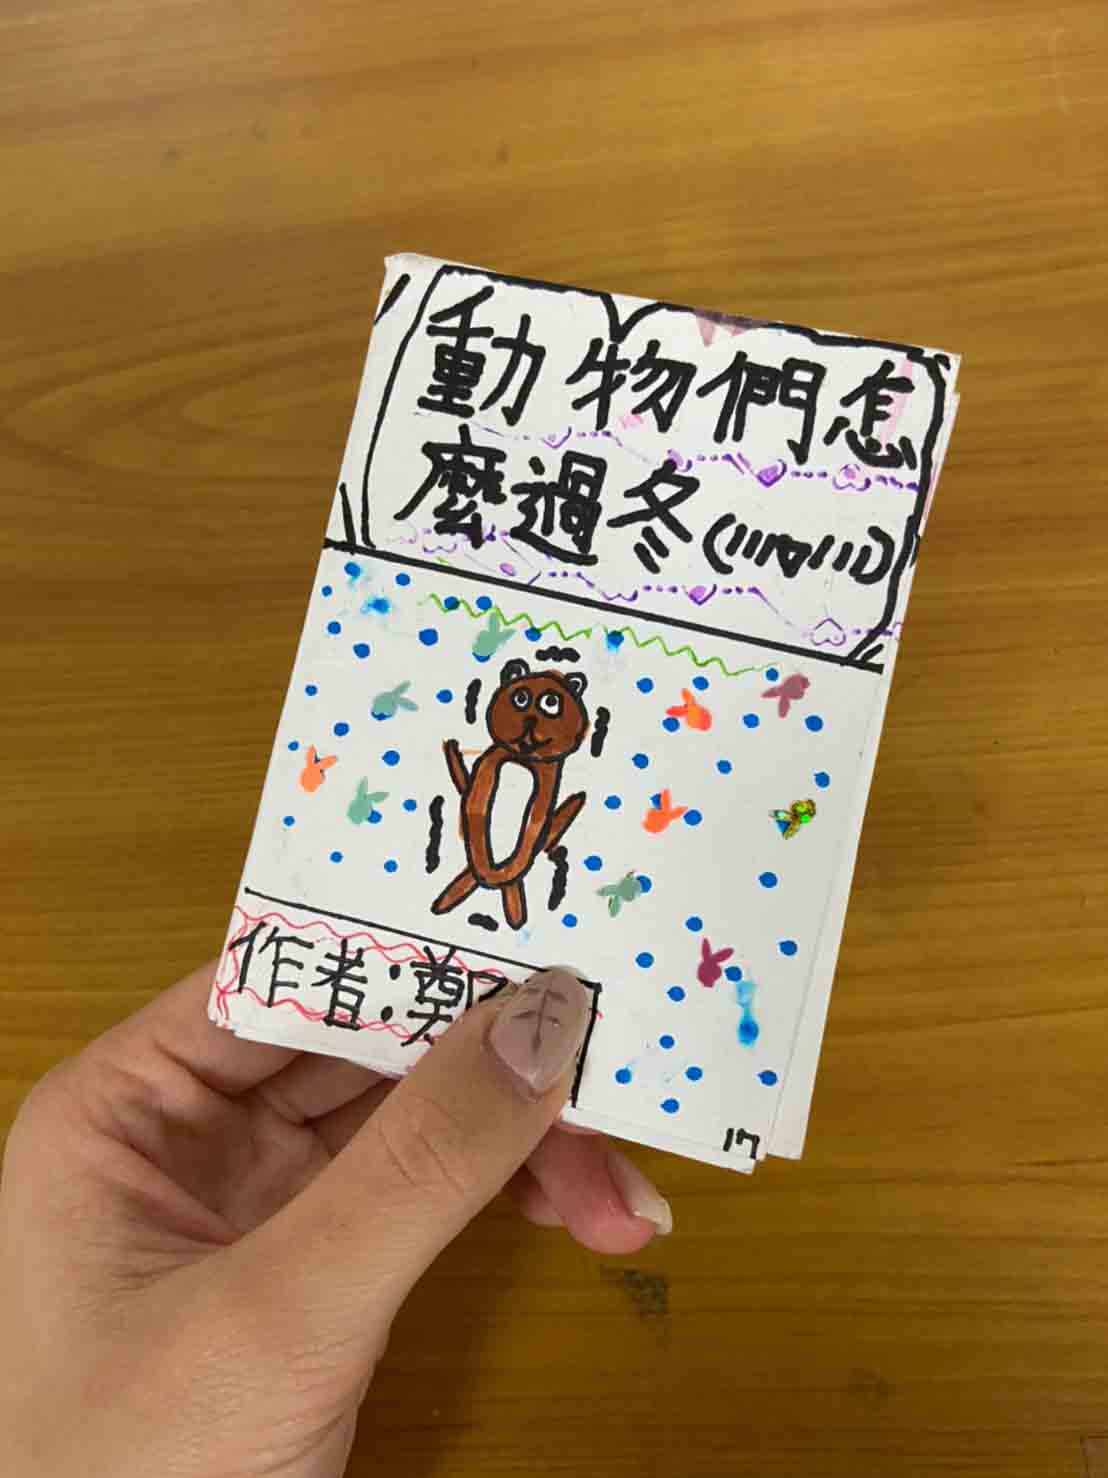 動物們怎
麼過冬(///▽///)
作者:鄭
17